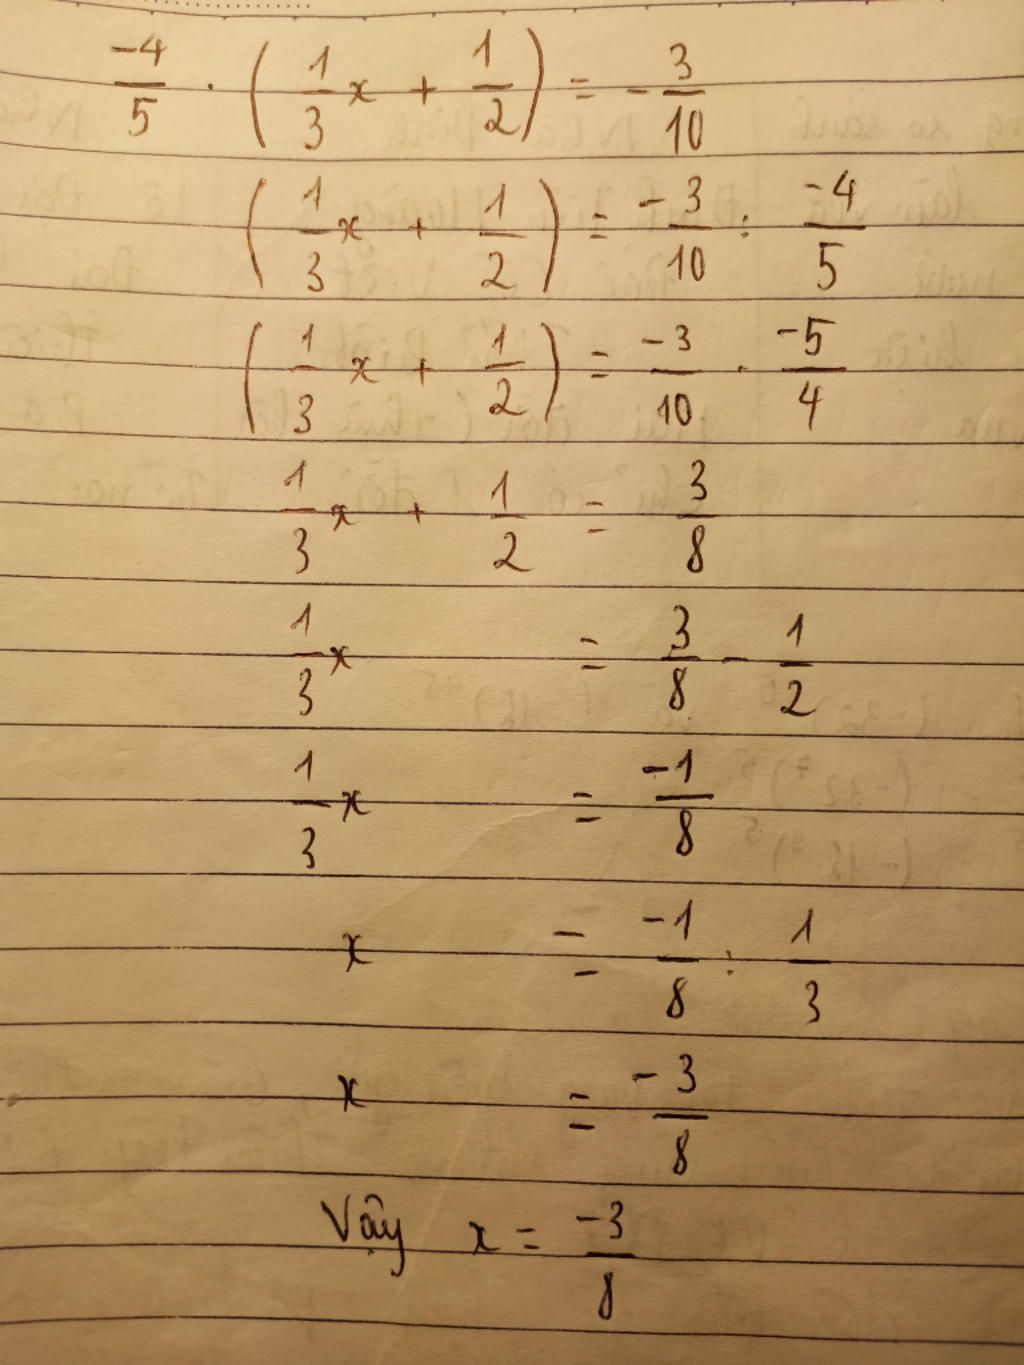 -4/5 . (1/3 x + 1/2) = - 3/10
(1/3 x + 1/2) = -3/10 : -4/5
(1/3 x + 1/2) = -3/10 . -5/4
1/3 x + 1/2 = 3/8
1/3 x = 3/8 - 1/2
1/3 x = -1/8
x = -1/8 : 1/3
x = -3/8
Vậy x = -3/8